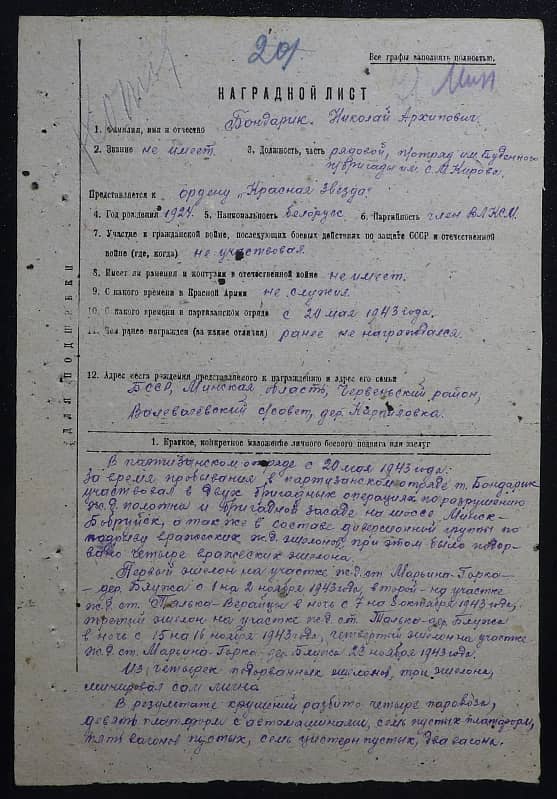 201
Все графы заполнять полностью.
НАГРАДНОЙ ЛИСТ
1. Фамилия, имя и отчество Бондарик Николай Архипович.
2. Звание не имеет. 3. Должность, часть рядовой, п/отряд им. Буденного
п/бригады им. С.М. Кирова.
Представляется к ордену „Красная Звезда"
4. Год рождения 1924. 5. Национальность белорус. 6. Партийность член ВЛКСМ.
7. Участие в гражданской войне, последующих боевых действиях по защите СССР и отечественной
войне (где, когда) не участвовал.
8. Имеет ли ранения и контузии в отечественной войне не имеет.
9. С какого времени в Красной Армии не служил.
10. С какого времени в партизанском отряде с 20 мая 1943 года.
11. Чем ранее награжден (за какие отличия) ранее не награждался.
12. Адрес места рождения представляемого к награждению и адрес его семьи
БССР, Минская область, Червеньский район,
с/совет, дер. Карпиловка.
ДЛЯ ПОДШИВКИ
1. Краткое, конкретное изложение личного боевого подвига или заслуг
В партизанском отряде с 20 мая 1943 года.
За время пребывания в партизанском отряде т. Бондарик
участвовал в двух бригадных операциях по разрушению
ж.д. полотна и бригадной засаде на шоссе Минск-
Бобруйск, а так же в составе диверсионной группы по
подрыву вражеских ж.д. эшелонов, при этом было подор-
вано четыре вражеских эшелона.
Первый эшелон на участке ж.д. ст. Марьина-Горка-
дер. Блужа с 1 на 2 ноября 1943 года, второй - на участке
ж.д. ст. Талька-Верайцы в ночь с 7 на 8 октября 1943 года,
третий эшелон на участке ж.д. ст. Талька-дер. Блужа
в ночь с 15 на 16 ноября 1943 года, четвертый эшелон на участке
ж.д. ст. Марьина-Горка-дер. Блужа 23 ноября 1943 года.
Из четырех подорванных эшелонов, три эшелона,
минировал сам лично
В результате крушений разбито четыре паровоза,
девять платформ с автомашинами, семь пустых платформ,
пять вагонов пустых, семь цистерн пустых, два вагона.